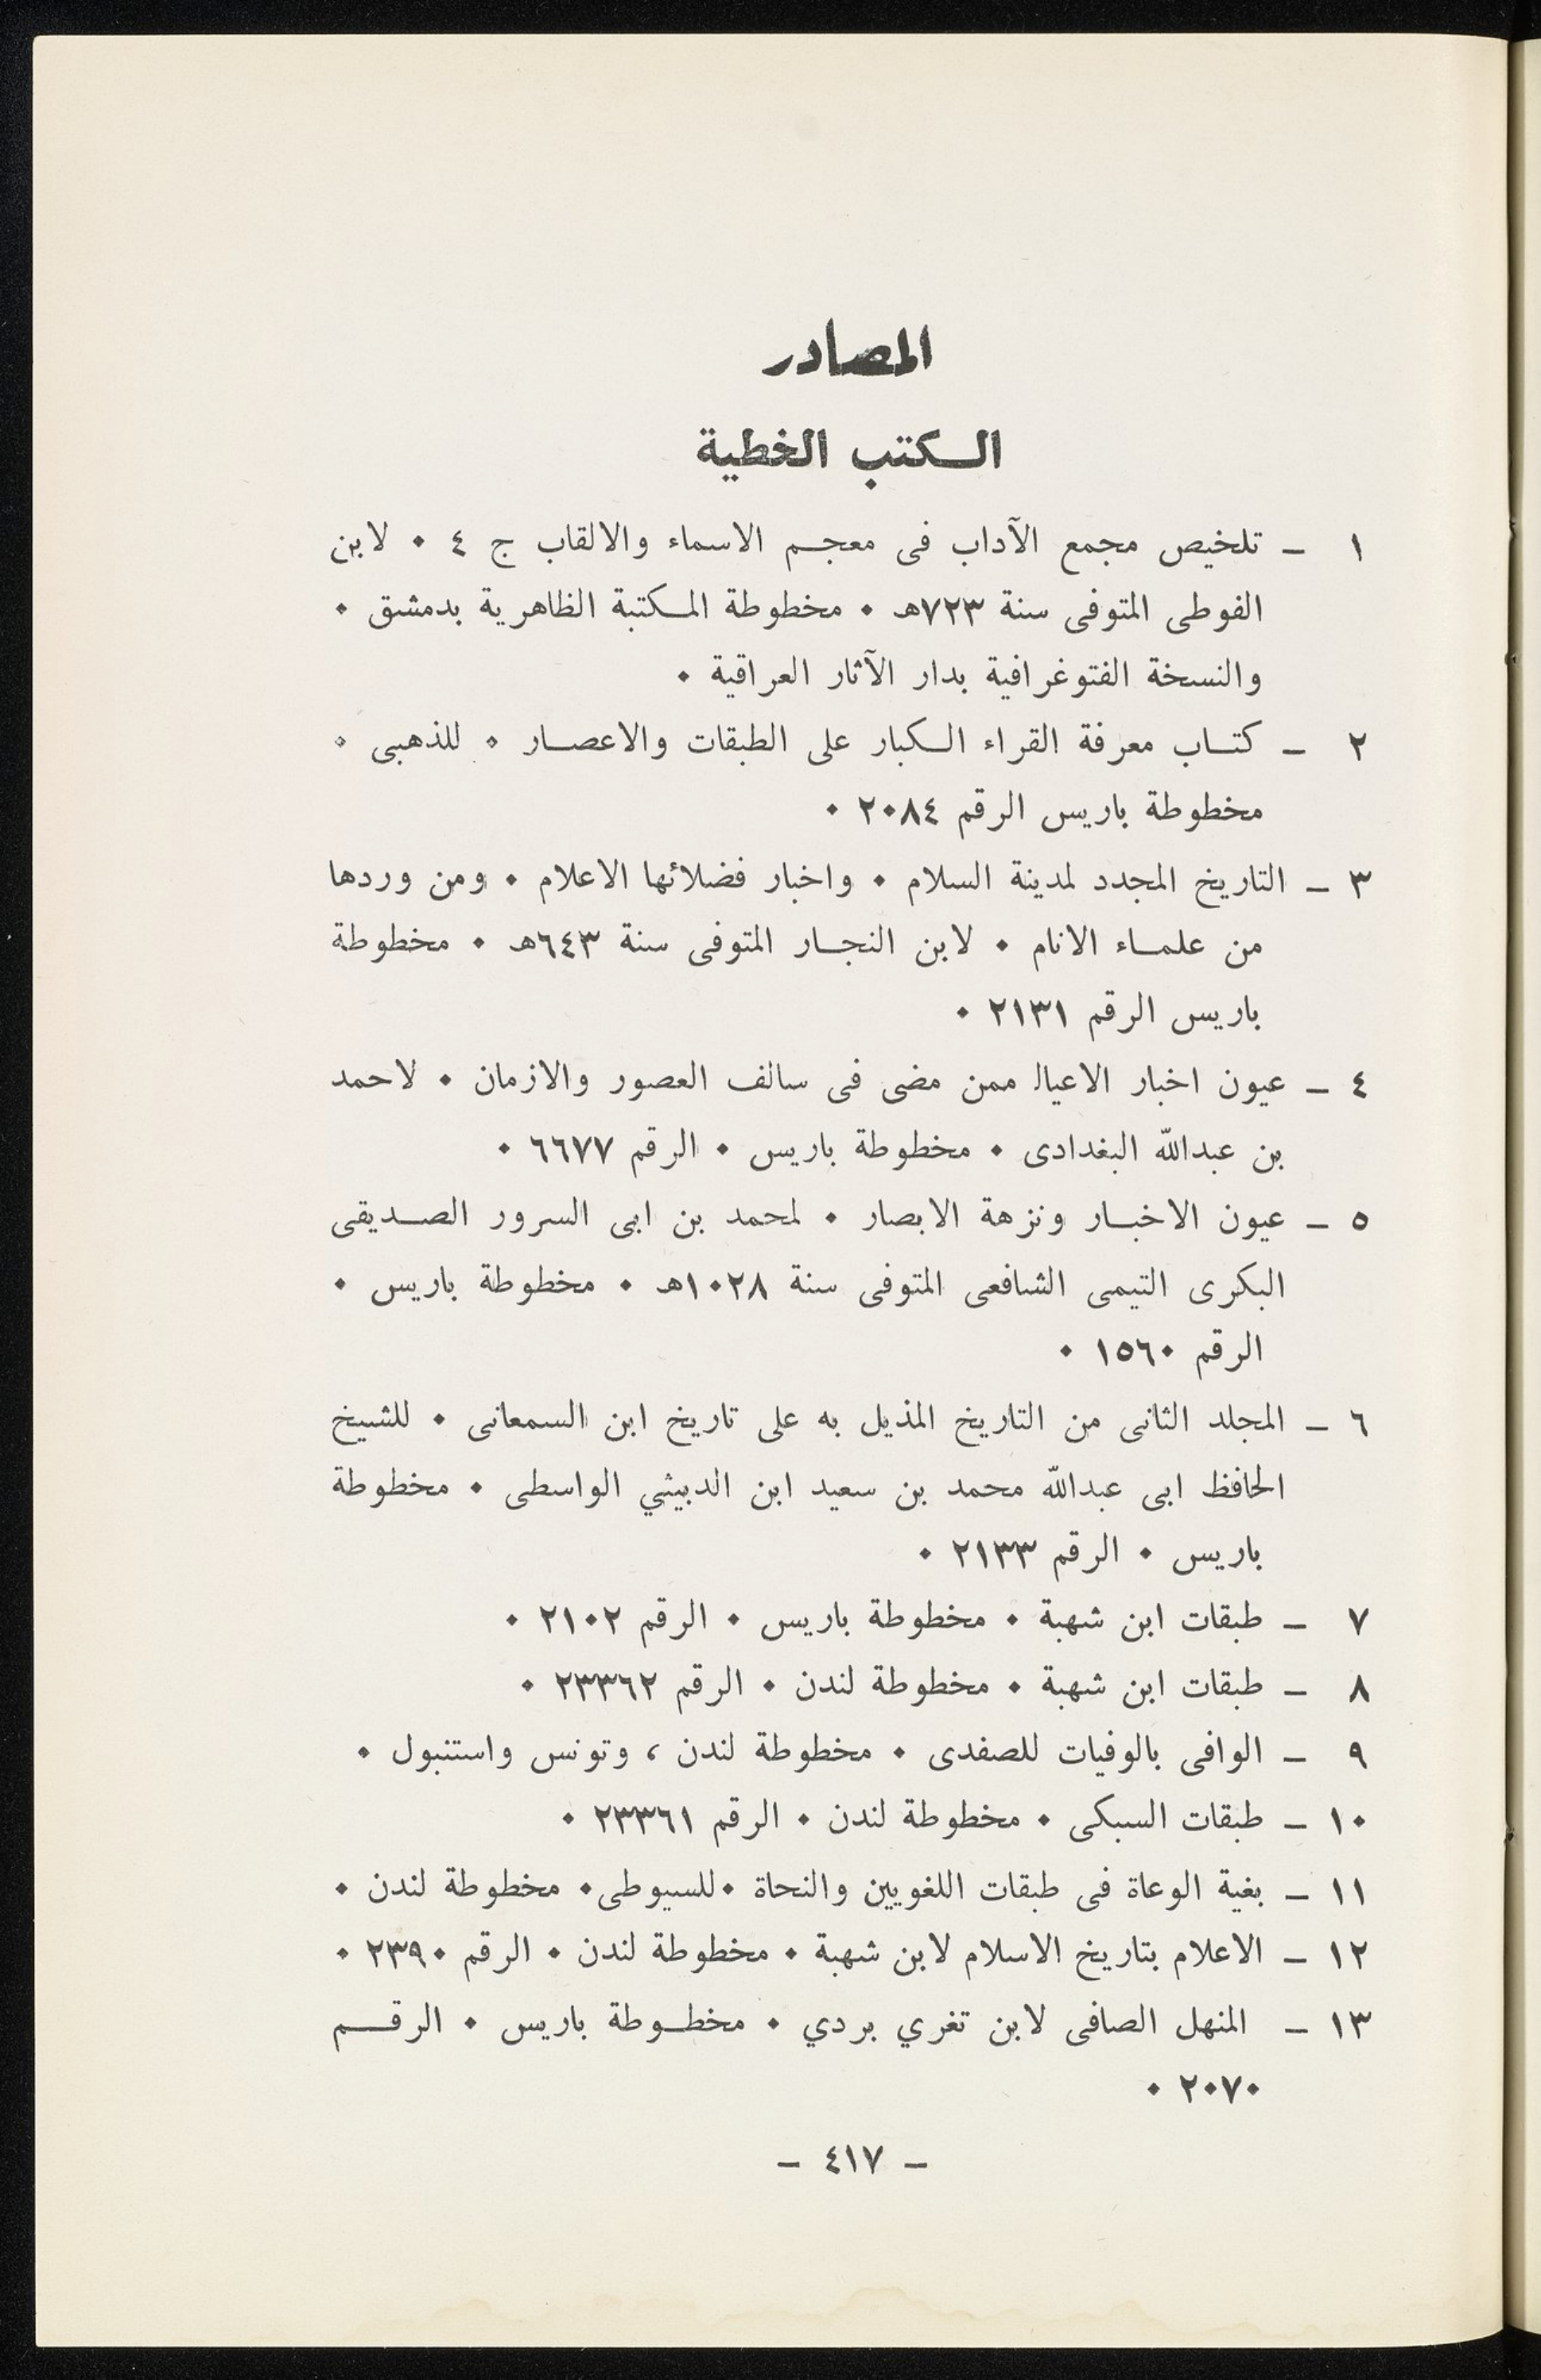 المصادر
الكتب الخطية
١ – تلخيص مجمع الآداب فى معجم الاسماء والالقاب ج ٤ ٠ لابن
الفوطى المتوفى سنة ٧٢٣هـ ٠ مخطوطة المكتبة الظاهرية بدمشق ٠
والنسخة الفتوغرافية بدار الآثار العراقية ٠
٢ – كتاب معرفة القراء الكبار على الطبقات والاعصار ٠ للذهبى ٠
مخطوطة باريس الرقم ٢٠٨٤ ٠
٣ – التاريخ المجدد لمدينة السلام ٠ واخبار فضلائها الاعلام ٠ ومن وردها
من علماء الانام ٠ لابن النجار المتوفى سنة ٦٤٣هـ ٠ مخطوطة
باريس الرقم ٢١٣١ ٠
٤ – عيون اخبار الاعيا‍ل ممن مضى فى سالف العصور والازمان ٠ لاحمد
بن عبدالله البغدادى ٠ مخطوطة باريس ٠ الرقم ٦٦٧٧ ٠
٥ – عيون الاخبار ونزهة الابصار ٠ لمحمد بن ابى السرور الصديقى
البكرى التيمى الشافعى المتوفى سنة ١٠٢٨هـ ٠ مخطوطة باريس ٠
الرقم ١٥٦٠ ٠
٦ – المجلد الثانى من التاريخ المذيل به على تاريخ ابن السمعانى ٠ للشيخ
الحافظ ابى عبدالله محمد بن سعيد ابن الدبيثي الواسطى ٠ مخطوطة
باريس ٠ الرقم ٢١٣٣ ٠
٧ – طبقات ابن شهبة ٠ مخطوطة باريس ٠ الرقم ٢١٠٢ ٠
٨ – طبقات ابن شهبة ٠ مخطوطة لندن ٠ الرقم ٢٣٣٦٢ ٠
٩ – الوافى بالوفيات للصفدى ٠ مخطوطة لندن ، وتونس واستنبول ٠
١٠ – طبقات السبكى ٠ مخطوطة لندن ٠ الرقم ٢٣٣٦١ ٠
١١ – بغية الوعاة فى طبقات اللغويين والنحاة ٠ للسيوطى ٠ مخطوطة لندن ٠
١٢ – الاعلام بتاريخ الاسلام لابن شهبة ٠ مخطوطة لندن ٠ الرقم ٢٣٩٠ ٠
١٣ – المنهل الصافى لابن تغري بردي ٠ مخطوطة باريس ٠ الرقم
٢٠٧٠ ٠
– ٤١٧ –